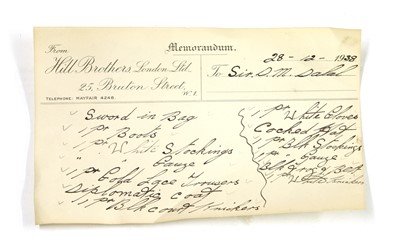 Memorandum.
From
Hill Brothers London Ltd.
25, Bruton Street,
W.1.
TELEPHONE: MAYFAIR 4246.
28-12-1938
To Sir. D. M. Dalal
Sword in Bag
1 pr Boots
1 pr White Stockings
" " Gauze "
1 pr Gold Lace Trousers
Diplomatic Coat
1 pr Blk Court Knickers
1 pr White Gloves
Cocked Hat
1 pr Blk Stockings
1 pr Gauze "
Blk
1 pr White Knickers